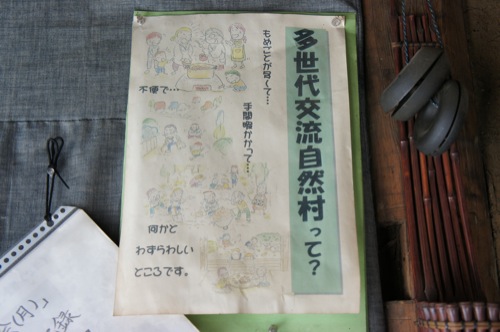 多世代交流自然村って？
もめごとが多くて…
手間暇かかって…
不便で…
何かと
わずらわしい
ところです。
(月)」
録